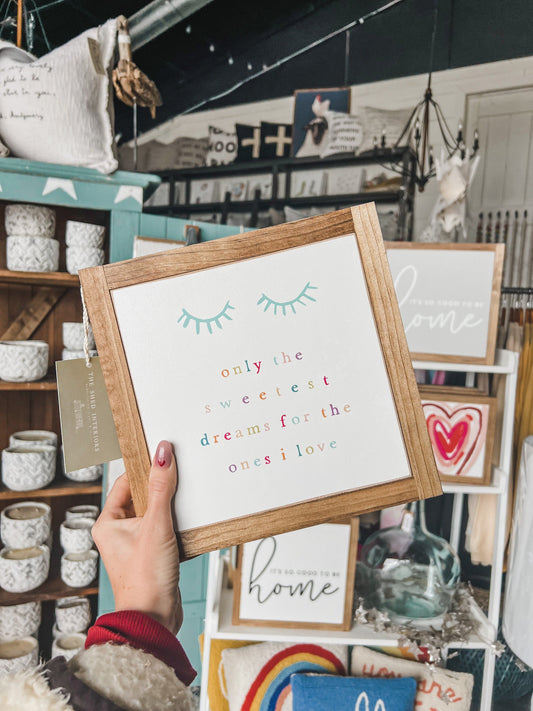 only the
sweetest
dreams for the
ones i love
THE SHED INTERIORS
it's so good to be
home
it's so good to be
home
you are